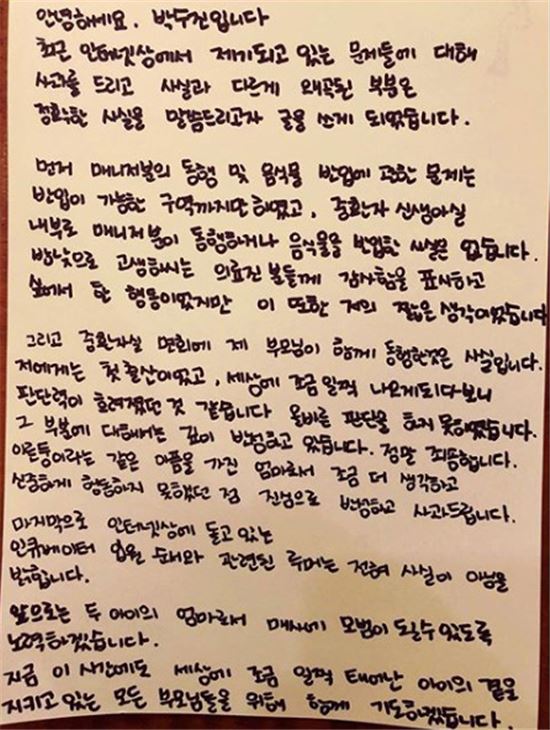 안녕하세요. 박수진입니다
최근 인터넷상에서 제기되고 있는 문제들에 대해
사과를 드리고 사실과 다르게 왜곡된 부분은
정확한 사실을 말씀드리고자 글을 쓰게 되었습니다.
먼저 매니저분의 동행 및 음식물 반입에 관한 문제는
반입이 가능한 구역까지만 하였고, 중환자 신생아실
내부로 매니저분이 동행하거나 음식물을 반입한 사실은 없습니다.
밤낮으로 고생하시는 의료진 분들께 감사함을 표시하고
싶어서 한 행동이었지만 이 또한 저의 짧은 생각이었습니다
그리고 중환자실 면회에 제 부모님이 함께 동행한것은 사실입니다.
저에게는 첫 출산이었고, 세상에 조금 일찍 나오게되다보니
판단력이 흐려졌던 것 같습니다 올바른 판단을 하지 못하였습니다.
그 부분에 대해서는 깊이 반성하고 있습니다. 정말 죄송합니다.
이른둥이라는 같은 아픔을 가진 엄마로서 조금 더 생각하고
신중하게 행동하지 못했던 점 진심으로 반성하고 사과드립니다.
마지막으로 인터넷상에 돌고 있는
인큐베이터 입원 순서와 관련된 루머는 전혀 사실이 아님을
밝힙니다.
앞으로는 두 아이의 엄마로서 매사에 모범이 되일수 있도록
노력하겠습니다.
지금 이 시간에도 세상에 조금 일찍 태어난 아이의 곁을
지키고 있는 모든 부모님들을 위해 함께 기도하겠습니다.